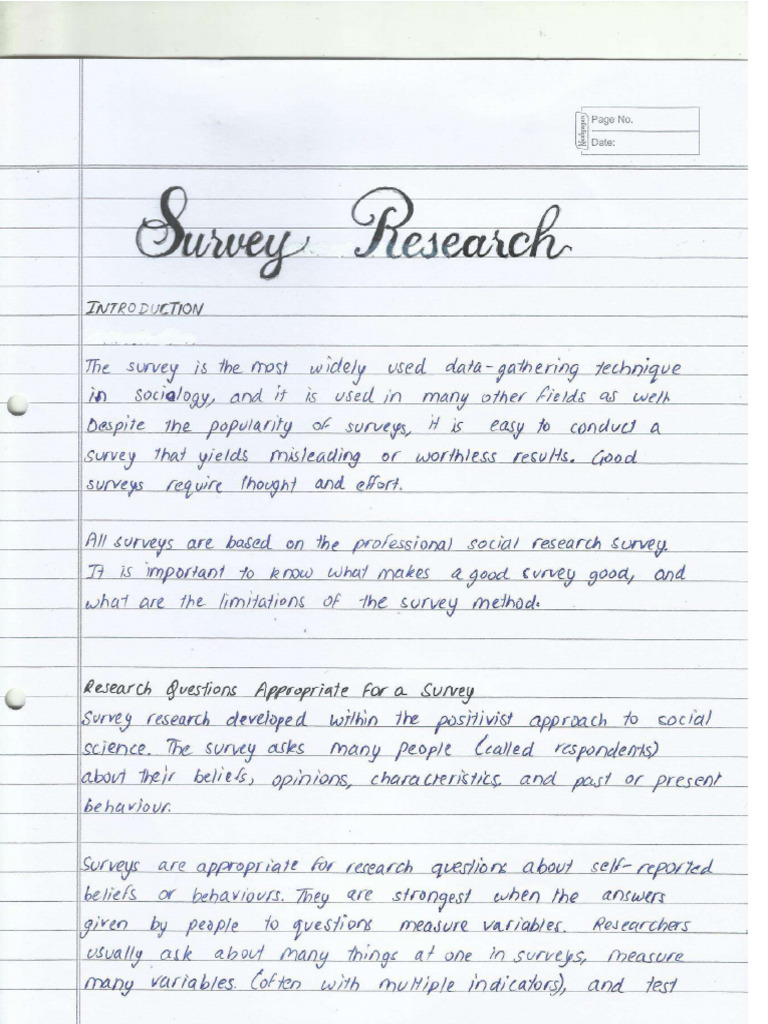 Page No.
Date:
Survey Research
INTRODUCTION
The survey is the most widely used data-gathering technique
in sociology, and it is used in many other fields as well.
Despite the popularity of surveys, it is easy to conduct a
survey that yields misleading or worthless results. Good
surveys require thought and effort.
All surveys are based on the professional social research survey.
It is important to know what makes a good survey good, and
what are the limitations of the survey method.
Research Questions Appropriate For a Survey
Survey research developed within the positivist approach to social
science. The survey asks many people (called respondents)
about their beliefs, opinions, characteristics, and past or present
behaviour.
Surveys are appropriate for research questions about self-reported
beliefs or behaviours. They are strongest when the answers
given by people to questions measure variables. Researchers
usually ask about many things at one in surveys, measure
many variables. (often with multiple indicators), and test